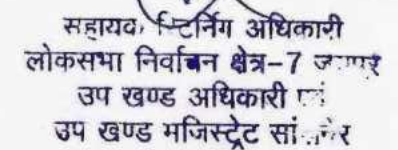 सहायक रिटर्निंग अधिकारी
लोकसभा निर्वाचन क्षेत्र-7 जयपुर
उप खण्ड अधिकारी एवं
उप खण्ड मजिस्ट्रेट